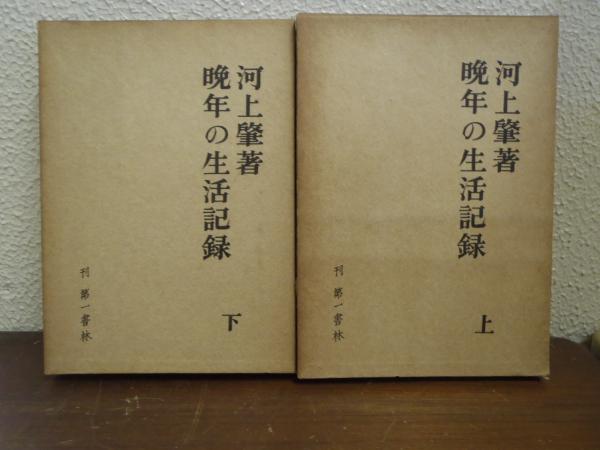 河上肇著
晩年の生活記録
上
刊 第一書林
河上肇著
晩年の生活記録
下
刊 第一書林